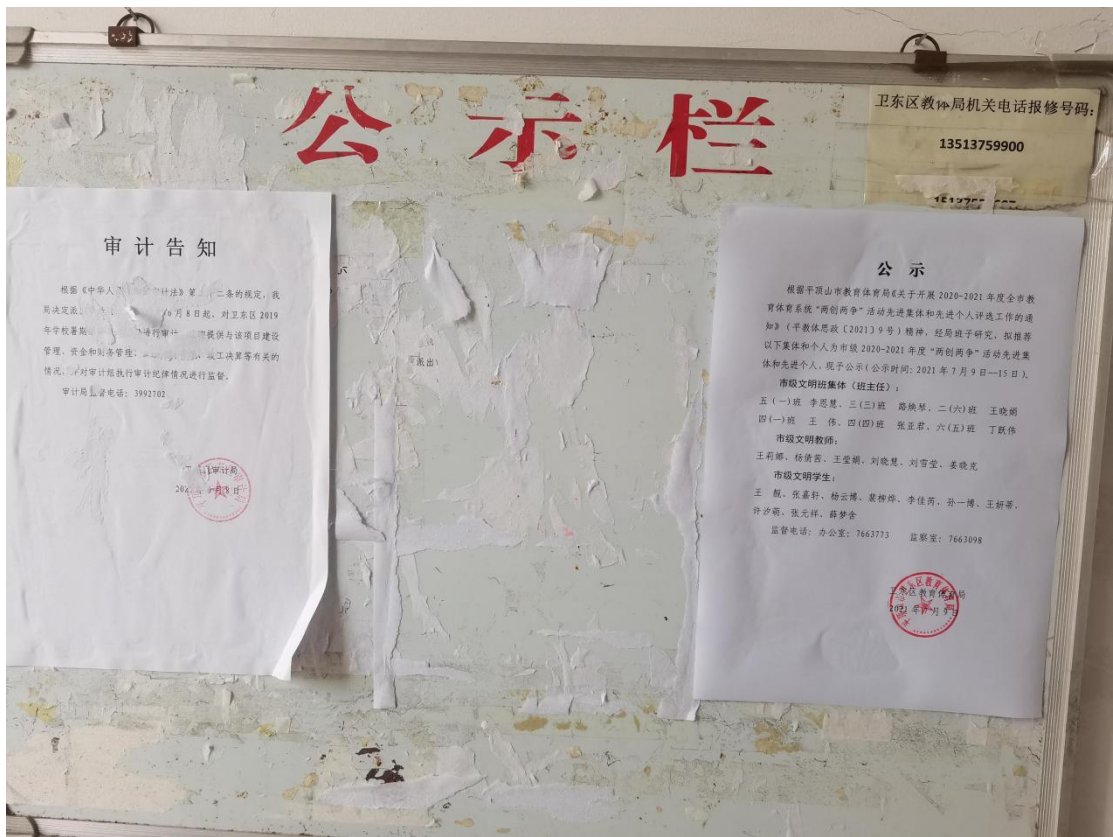 公示栏
卫东区教体局机关电话报修号码:
13513759900
审计告知
根据《中华人 计法》第 二条的规定,我
局决定派 月8日起,对卫东区2019
年学校暑期 进行审计 提供与该项目建设
管理、资金和财务管理、 竣工决算等有关的
情况,并对审计组执行审计纪律情况进行监督。
审计局监督电话:3992702
审计局
月8日
公示
根据平顶山市教育体育局《关于开展2020-2021年度全市教
育体育系统“两创两争”活动先进集体和先进个人评选工作的通
知》(平教体思政〔2021〕9号)精神,经局班子研究,拟推荐
以下集体和个人为市级2020-2021年度“两创两争”活动先进集
体和先进个人,现予公示(公示时间:2021年7月9日—15日)。
市级文明班集体(班主任):
五(一)班 李恩慧、三(三)班 路焕琴、二(六)班 王晓娟
四(一)班 王伟、四(四)班 张亚若、六(五)班 丁跃伟
市级文明教师:
王莉娜、杨倩茜、王莹娟、刘晓慧、刘雪莹、姜晓克
市级文明学生:
王靓、张嘉轩、杨云博、裴柳烨、李佳芮、孙一博、王妍蒂、
许汐萌、张元祥、薛梦含
监督电话:办公室:7663773 监察室:7663098
卫东区教育体育局
2021年7月9日
派出
六